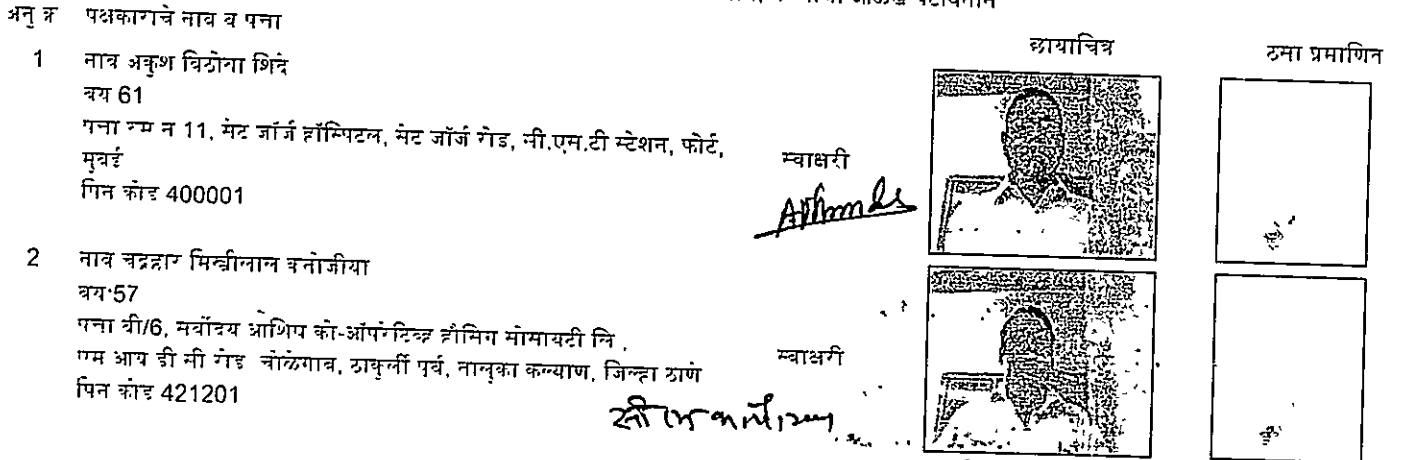 अनु क्र पक्षकाराचे नाव व पत्ता
छायाचित्र ठसा प्रमाणित
1 नाव अकुश विठोबा शिदे
वय 61
पत्ता रूम न 11, सेंट जॉर्ज हॉस्पिटल, सेंट जॉर्ज रोड, सी.एस.टी स्टेशन, फोर्ट,
मुबई
पिन कोड 400001
स्वाक्षरी
2 नाव चद्रहार मिस्त्रीलाल कनोजीया
वय 57
पत्ता बी/6, सर्वोदय आशिष को-ऑपरेटिव्ह हौसिग सोसायटी लि .
एम आय डी सी रोड चोळेगाव, ठाकुर्ली पूर्व, तालुका कल्याण, जिल्हा ठाणे
पिन कोड 421201
स्वाक्षरी